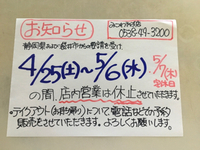 お知らせ
0538-49-3200
静岡県および磐田市からの要請を受け、
4/25(土)〜5/6(水)
5/7(木)
定休日
の間、店内営業は休止させていただきます。
テイクアウト(お持ち帰り)について、電話などでの予約
販売をさせていただきます。よろしくお願いします。